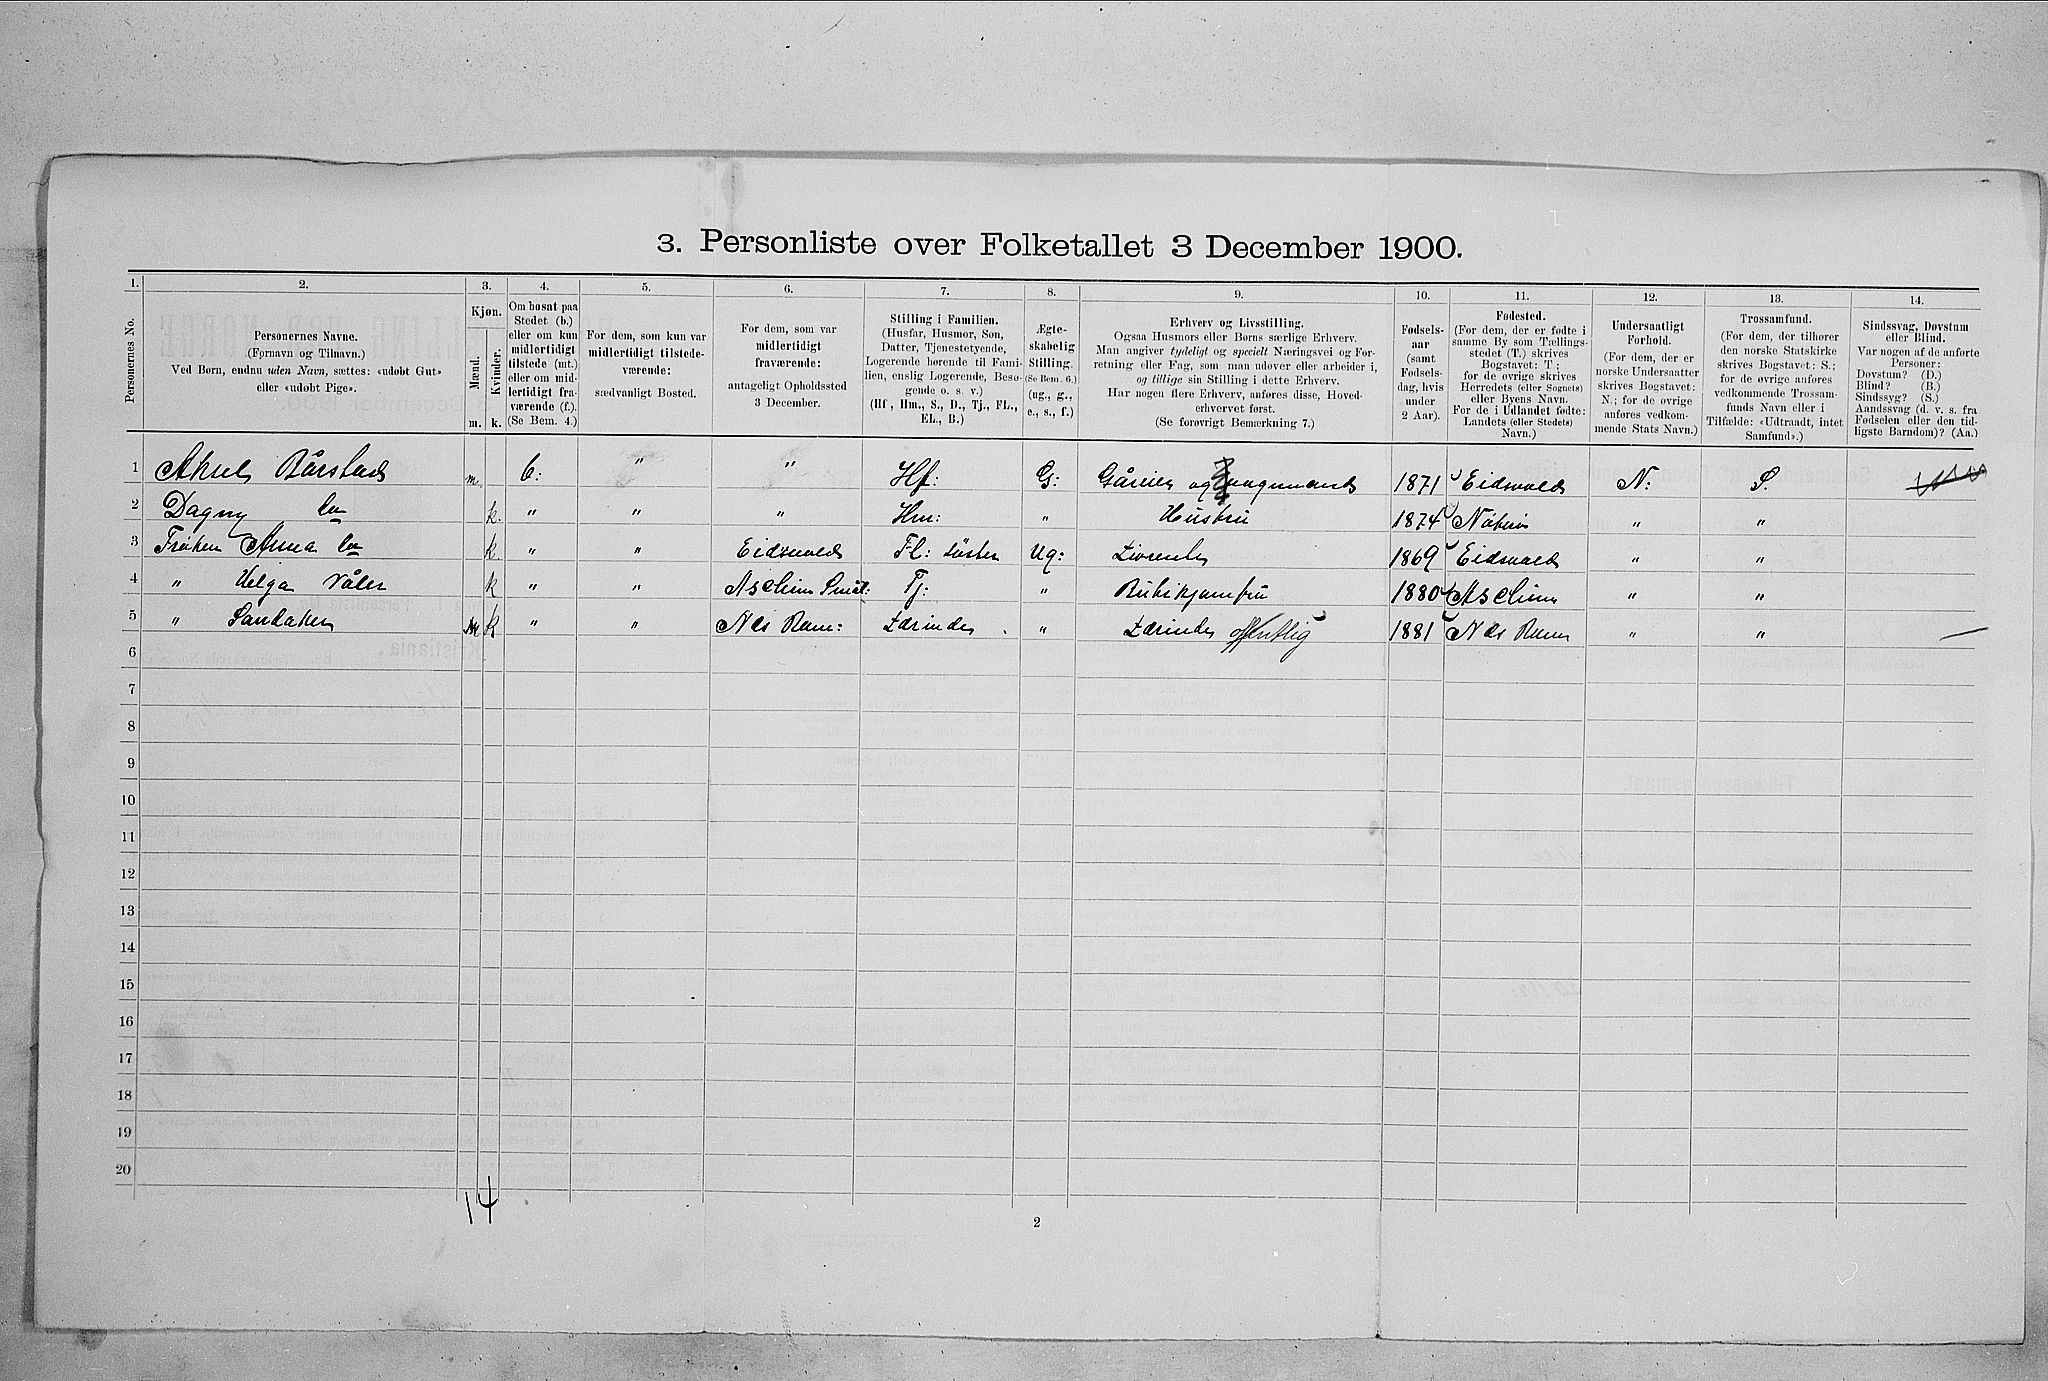 3. Personliste over Folketallet 3 December 1900.
1. 2. 3. 4. 5. 6. 7. 8. 9. 10. 11. 12. 13. 14.
Personernes No.
Personernes Navne.
(Fornavn og Tilnavn.)
Ved Børn, endnu uden Navn, sættes: «udøbt Gut»
eller «udøbt Pige».
Kjøn.
Mænd.
Kvinder.
m. k.
Om bosat paa
Stedet (b.)
eller om kun
midlertidigt
tilstede (mt.)
eller om mid-
lertidigt fra-
værende (f.).
(Se Bem. 4.)
For dem, som kun var
midlertidigt tilstede-
værende:
sædvanligt Bosted.
For dem, som var
midlertidigt
fraværende:
antageligt Opholdssted
3 December.
Stilling i Familien.
(Husfar, Husmor, Søn,
Datter, Tjenestetyende,
Logerende hørende til Fami-
lien, enslig Logerende, Besø-
gende o. s. v.)
(Hf., Hm., S., D., Tj., FL.,
EL., B.)
Ægte-
skabelig
Stilling.
(Se Bem. 6.)
(ug., g.,
e., s., f.)
Erhverv og Livsstilling.
Ogsaa Husmors eller Børns særlige Erhverv.
Man angiver tydeligt og specielt Næringsvei og For-
retning eller Fag, som man udøver eller arbeider i,
og tillige sin Stilling i dette Erhverv.
Har nogen flere Erhverv, anføres disse, Hoved-
erhvervet først.
(Se forøvrigt Bemærkning 7.)
Fødsels-
aar
(samt
Fødsels-
dag, hvis
under
2 Aar).
Fødested.
(For dem, der er fødte i
samme By som Tællings-
stedet (T.) skrives
Bogstavet: T.;
for de øvrige skrives
Herredets (eller Sognets)
eller Byens Navn.
For de i Udlandet fødte:
Landets (eller Stedets)
Navn.)
Undersaatligt
Forhold.
(For dem, der er
norske Undersaatter
skrives Bogstavet:
N.; for de øvrige
anføres vedkom-
mende Stats Navn.)
Trossamfund.
(For dem, der tilhører
den norske Statskirke
skrives Bogstavet: S.;
for de øvrige anføres
vedkommende Trossam-
funds Navn eller i
Tilfælde: «Udtraadt, intet
Samfund».)
Sindssvag, Døvstum
eller Blind.
Var nogen af de anførte
Personer:
Døvstum? (D.)
Blind? (B.)
Sindssyg? (S.)
Aandssvag (d. v. s. fra
Fødselen eller den tid-
ligste Barndom)? (Aa.)
1 Aksel Bårstad m. b: " " Hf: G: Gåreier og 1871 Eidsvold N: S.
2 Dagny do k. " " " Hm: " Hustru 1874 " "
3 Frøken Anna do k " " Eidsvold Fl: søster Ug: 1869 Eidsvold " "
4 " Helga Våler k " " Aschim Smål: Tj: " Butikjomfru 1880 Aschim " "
5 " Sandaker k " " Nes Rom: Lærinde " Lærinde offentlig 1881 Nes Rom " "
6
7
8
9
10
11
12
13
14
15
16
17
18
19
20
14
2